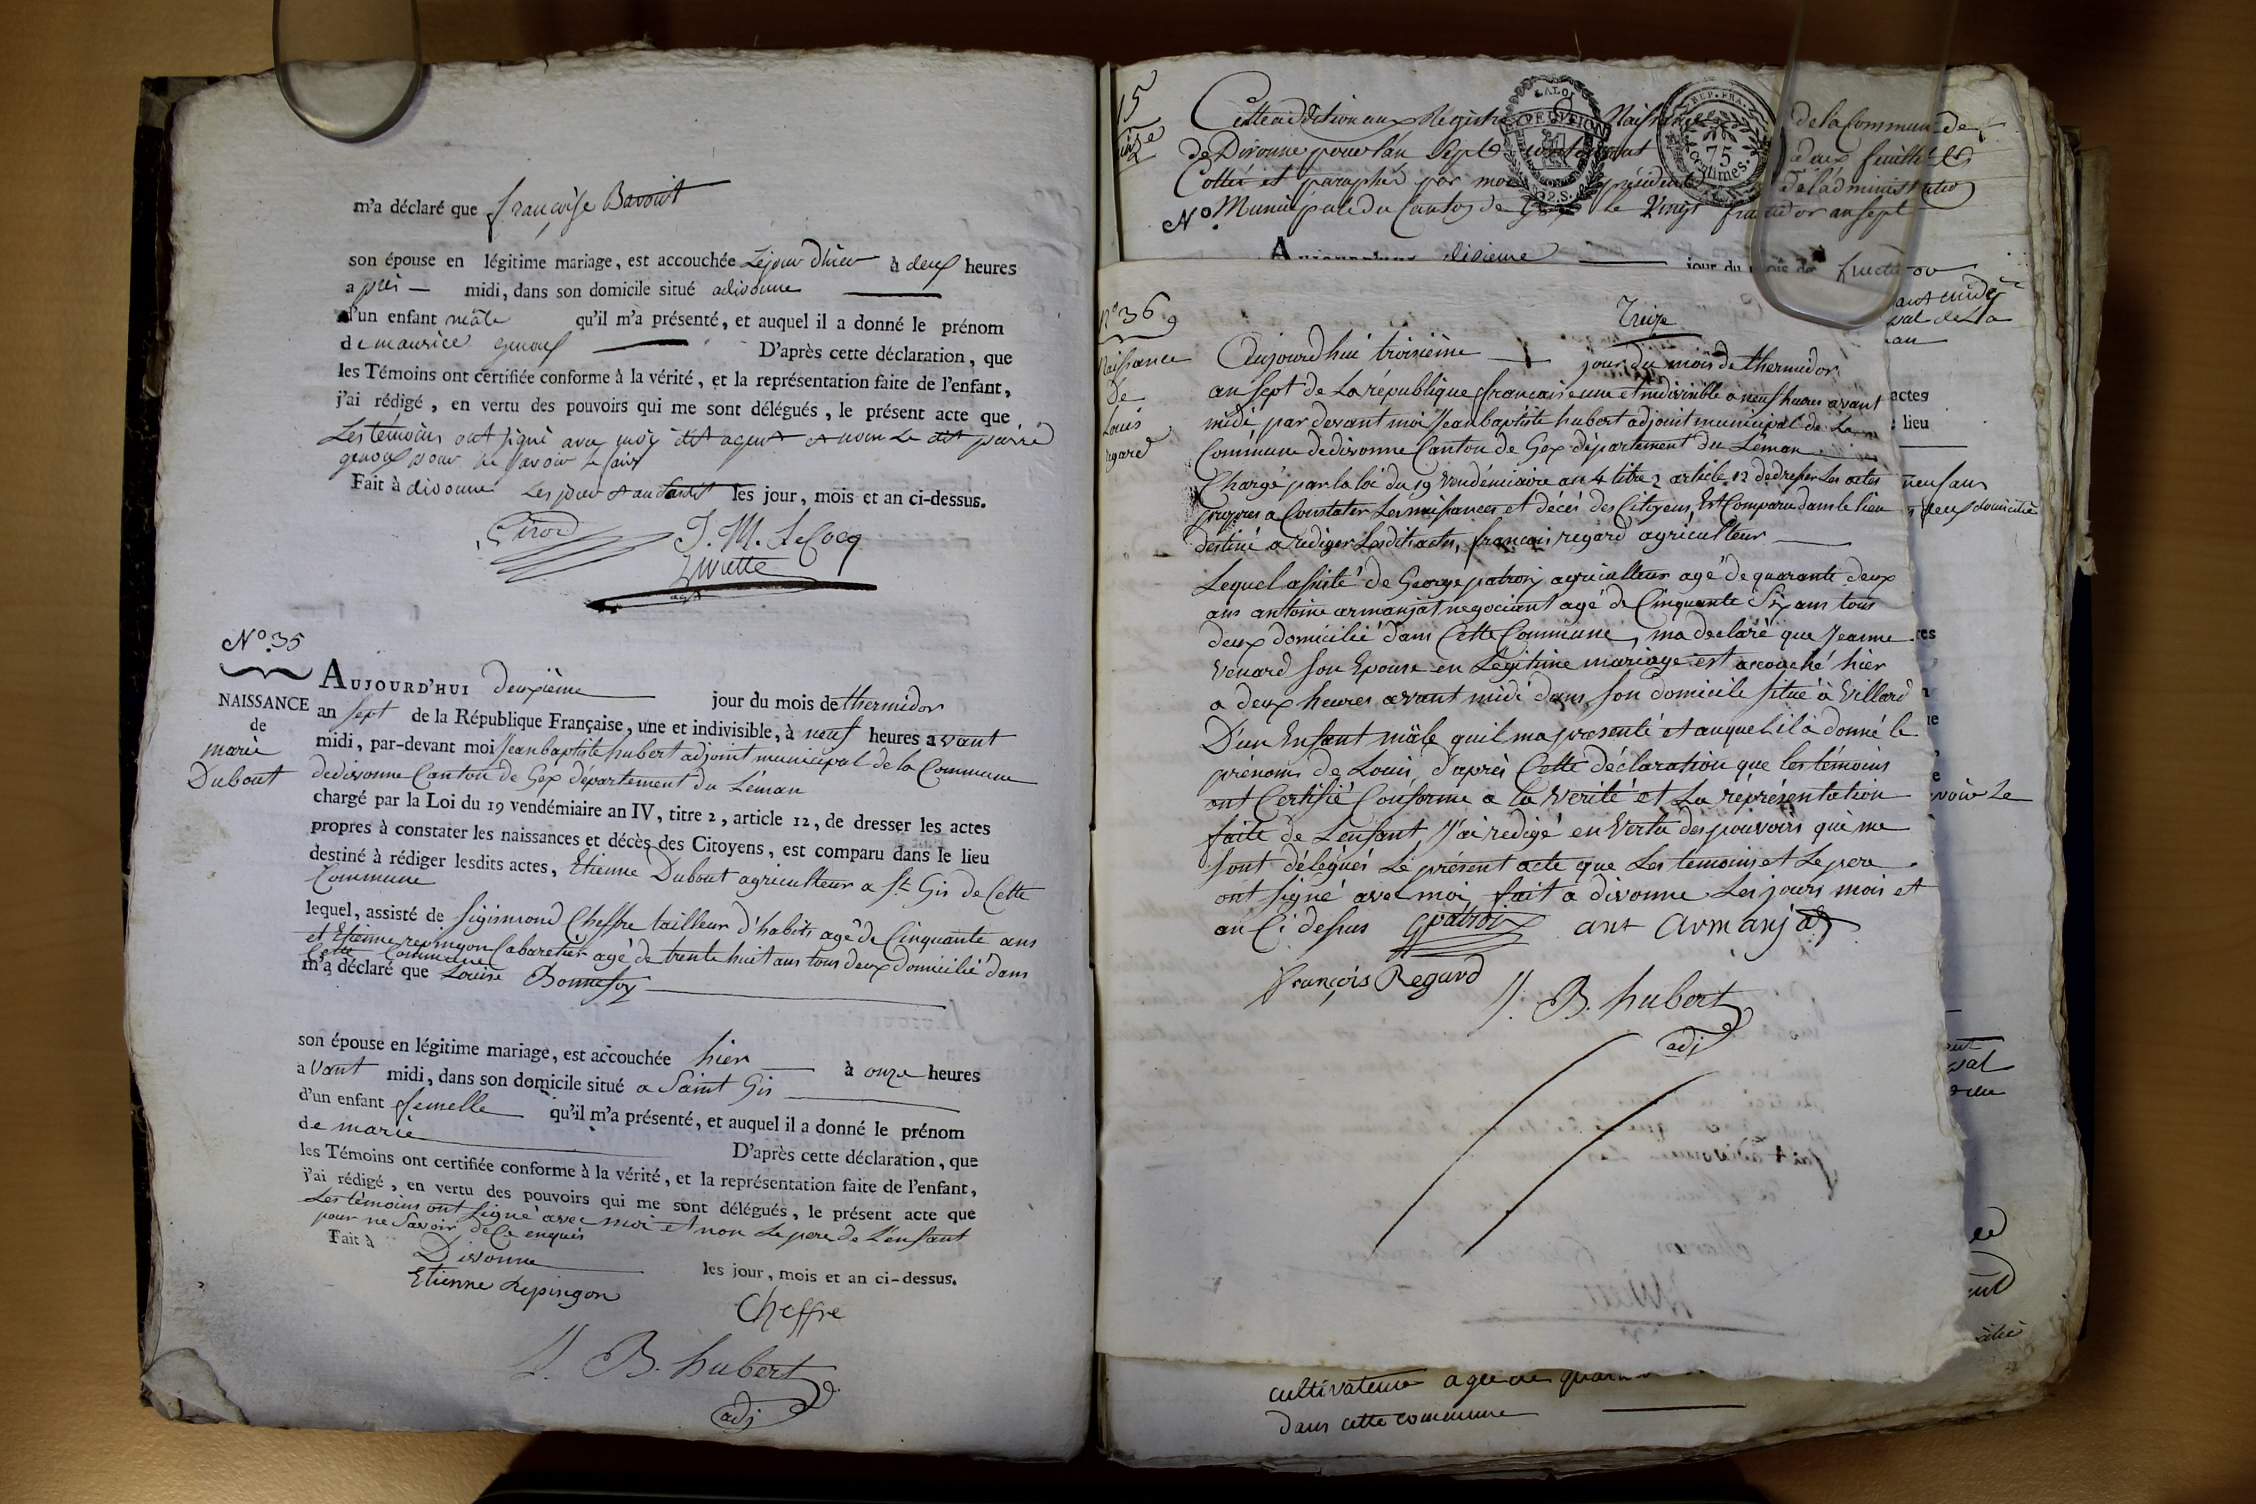 m'a déclaré que françoise Bavout
son épouse en légitime mariage, est accouchée Lejour d'hier à deux heures
après midi, dans son domicile situé adivonne
d'un enfant mâle qu'il m'a présenté, et auquel il a donné le prénom
de maurice genoux D'après cette déclaration, que
les Témoins ont certifiée conforme à la vérité, et la représentation faite de l'enfant,
j'ai rédigé, en vertu des pouvoirs qui me sont délégués, le présent acte que
Les témoins ont signé avec moy dit agent et non Le dit
genoux pour ne savoir Le faire
Fait à divonne Les jour & an les jour, mois et an ci-dessus.
Girod J. M. LeCocq
agt
N.o 35
NAISSANCE
de
marie
Dubout
AUJOURD'HUI deuxième jour du mois de thermidor
an sept de la République Française, une et indivisible, à neuf heures avant
midi, par-devant moi Jean baptiste hubert adjoint municipal de la Commune
dedivonne Canton de Gex département du Léman
chargé par la Loi du 19 vendémiaire an IV, titre 2, article 12, de dresser les actes
propres à constater les naissances et décès des Citoyens, est comparu dans le lieu
destiné à rédiger lesdits actes, Etienne Dubout agriculteur a St Gis de Cette
Commune
lequel, assisté de Sigismond Cheffre tailleur d'habits agé de Cinquante ans
et Etienne repingon Cabaretier agé de trente huit ans tous deux domicilié dans
Cette Commune
m'a déclaré que Louise Bonnefoy
son épouse en légitime mariage, est accouchée hier à onze heures
avant midi, dans son domicile situé a Saint Gis
d'un enfant femelle qu'il m'a présenté, et auquel il a donné le prénom
de marie D'après cette déclaration, que
les Témoins ont certifiée conforme à la vérité, et la représentation faite de l'enfant,
j'ai rédigé, en vertu des pouvoirs qui me sont délégués, le présent acte que
Les témoins ont signé avec moi et non Le pere de L'enfant
pour ne Savoir de Ce enquis
Fait à Divonne les jour, mois et an ci-dessus.
Etienne Repingon Cheffre
J. B. hubert
adj
15
Cette addition aux Registre Naissance de la Commune de
de Divonne pour l'an Sept deux feuillets
Cotté et paraphé par moi président de l'administration
N.o Municipale du Canton de Gex Le vingt fructidor an sept
AUJOURD'HUI dixieme jour du mois de fructidor
N.o 36
Naissance
De
Louis
regard
Treize
Aujourdhui troisième jour du mois de thermidor
an sept de La république francaise une et indivisible a neuf heures avant
midi, par devant moi Jean baptiste hubert adjoint municipal de La
Commune dedivonne Canton de Gex département du Léman
Chargé par la loi du 19 Vendémiaire an 4 titre 2 article 12 de dresser Les actes
propres a Constater Les naissances et décés des Citoyens, Est Comparu dans le lieu
destiné a rediger Lesdits actes, francois regard agriculteur
Lequel assisté de George patroix agriculteur agé de quarante deux
ans antoine armanjat negociant agé de Cinquante Six ans tous
deux domicilié dans Cette Commune, ma declaré que Jeanne
Venard Son Epouse en Légitime mariage est accouché hier
a deux heures avant midi dans Son domicile Situé à Villard
D'un Enfant mâle quil ma presenté et auquel il à donné le
prénoms de Louis, d'après Cette déclaration que les témoins
ont Certifié Conforme a la Verité et La représentation
faite de L'enfant, J'ai redigé en Vertu des pouvoirs qui me
Sont délégués Le présent acte que Les temoins et Le pere
ont Signé avec moi fait a divonne Les jours mois et
an Ci dessus Gpatroix ant Armanjat
François Regard
J. B. hubert
adj
actes
lieu
neuf ans
deux domiciliés
voir Le
cultivateur
dans cette commune